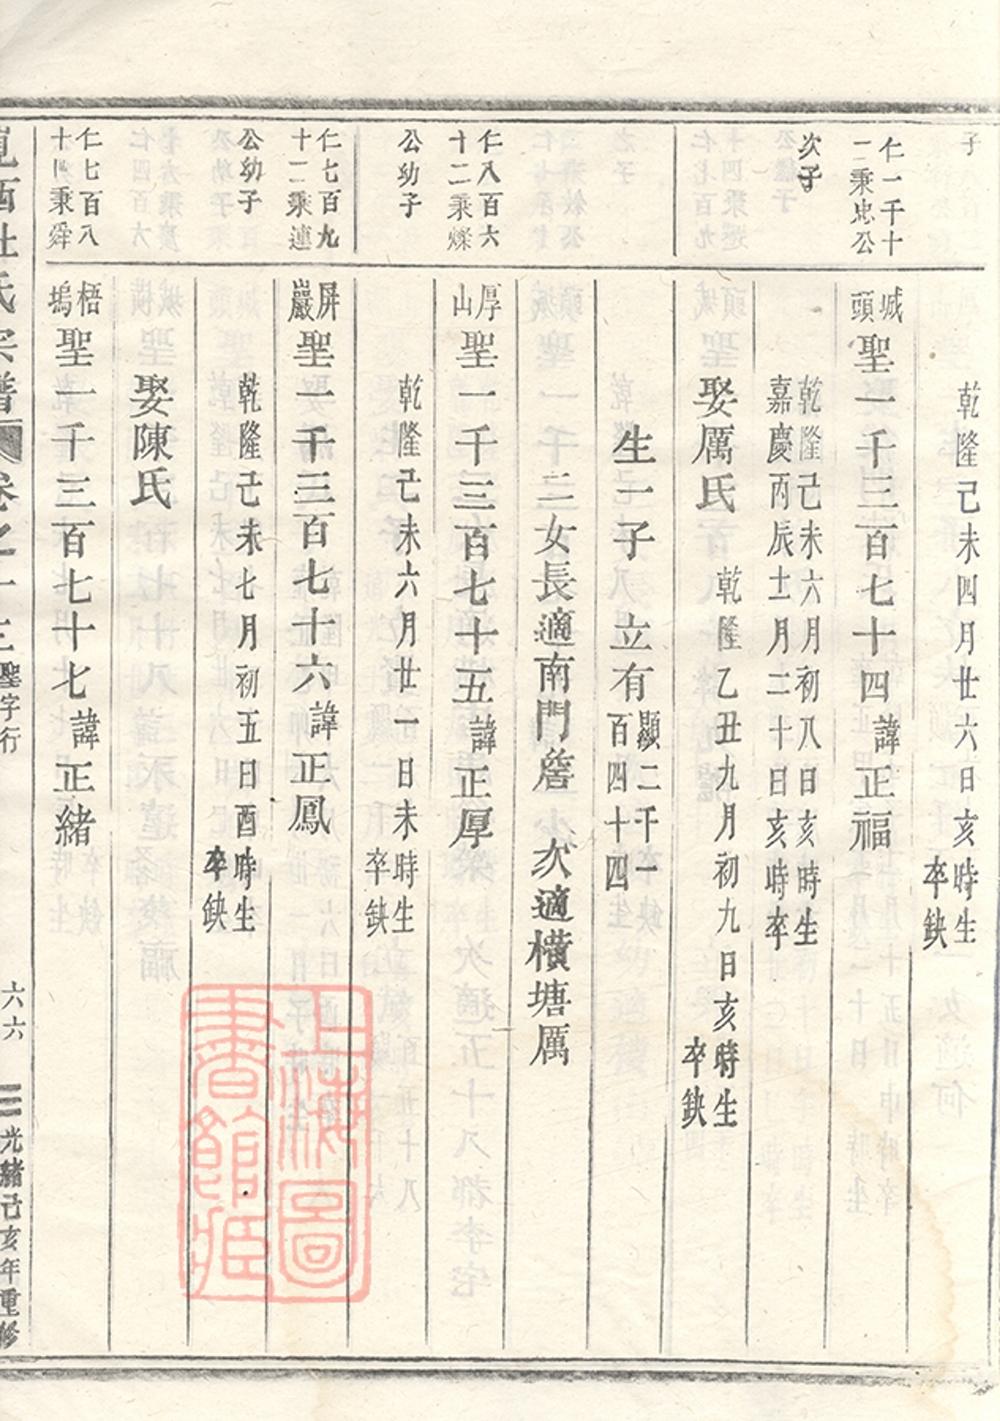 子
乾隆己未四月廿六日亥時生
卒缺
仁一千十
二秉忠公
次子
城頭
聖一千三百七十四諱正福
乾隆己未六月初八日亥時生
嘉慶丙辰十一月二十日亥時卒
娶厲氏
乾隆乙丑九月初九日亥時生
卒缺
生一子 立有
顯二千一
百四十四
二女長適南門詹 次適橫塘厲
仁八百六
十二秉燦
公幼子
厚山
聖一千三百七十五諱正厚
乾隆己未六月廿一日未時生
卒缺
仁七百九
十二秉連
公幼子
屏巖
聖一千三百七十六諱正鳳
乾隆己未七月初五日酉時生
卒缺
娶陳氏
仁七百八
十四秉舜
梧塢
聖一千三百七十七諱正緒
杜氏宗譜
卷之十三
聖字行
六六
光緒己亥年重修
上海圖書館藏